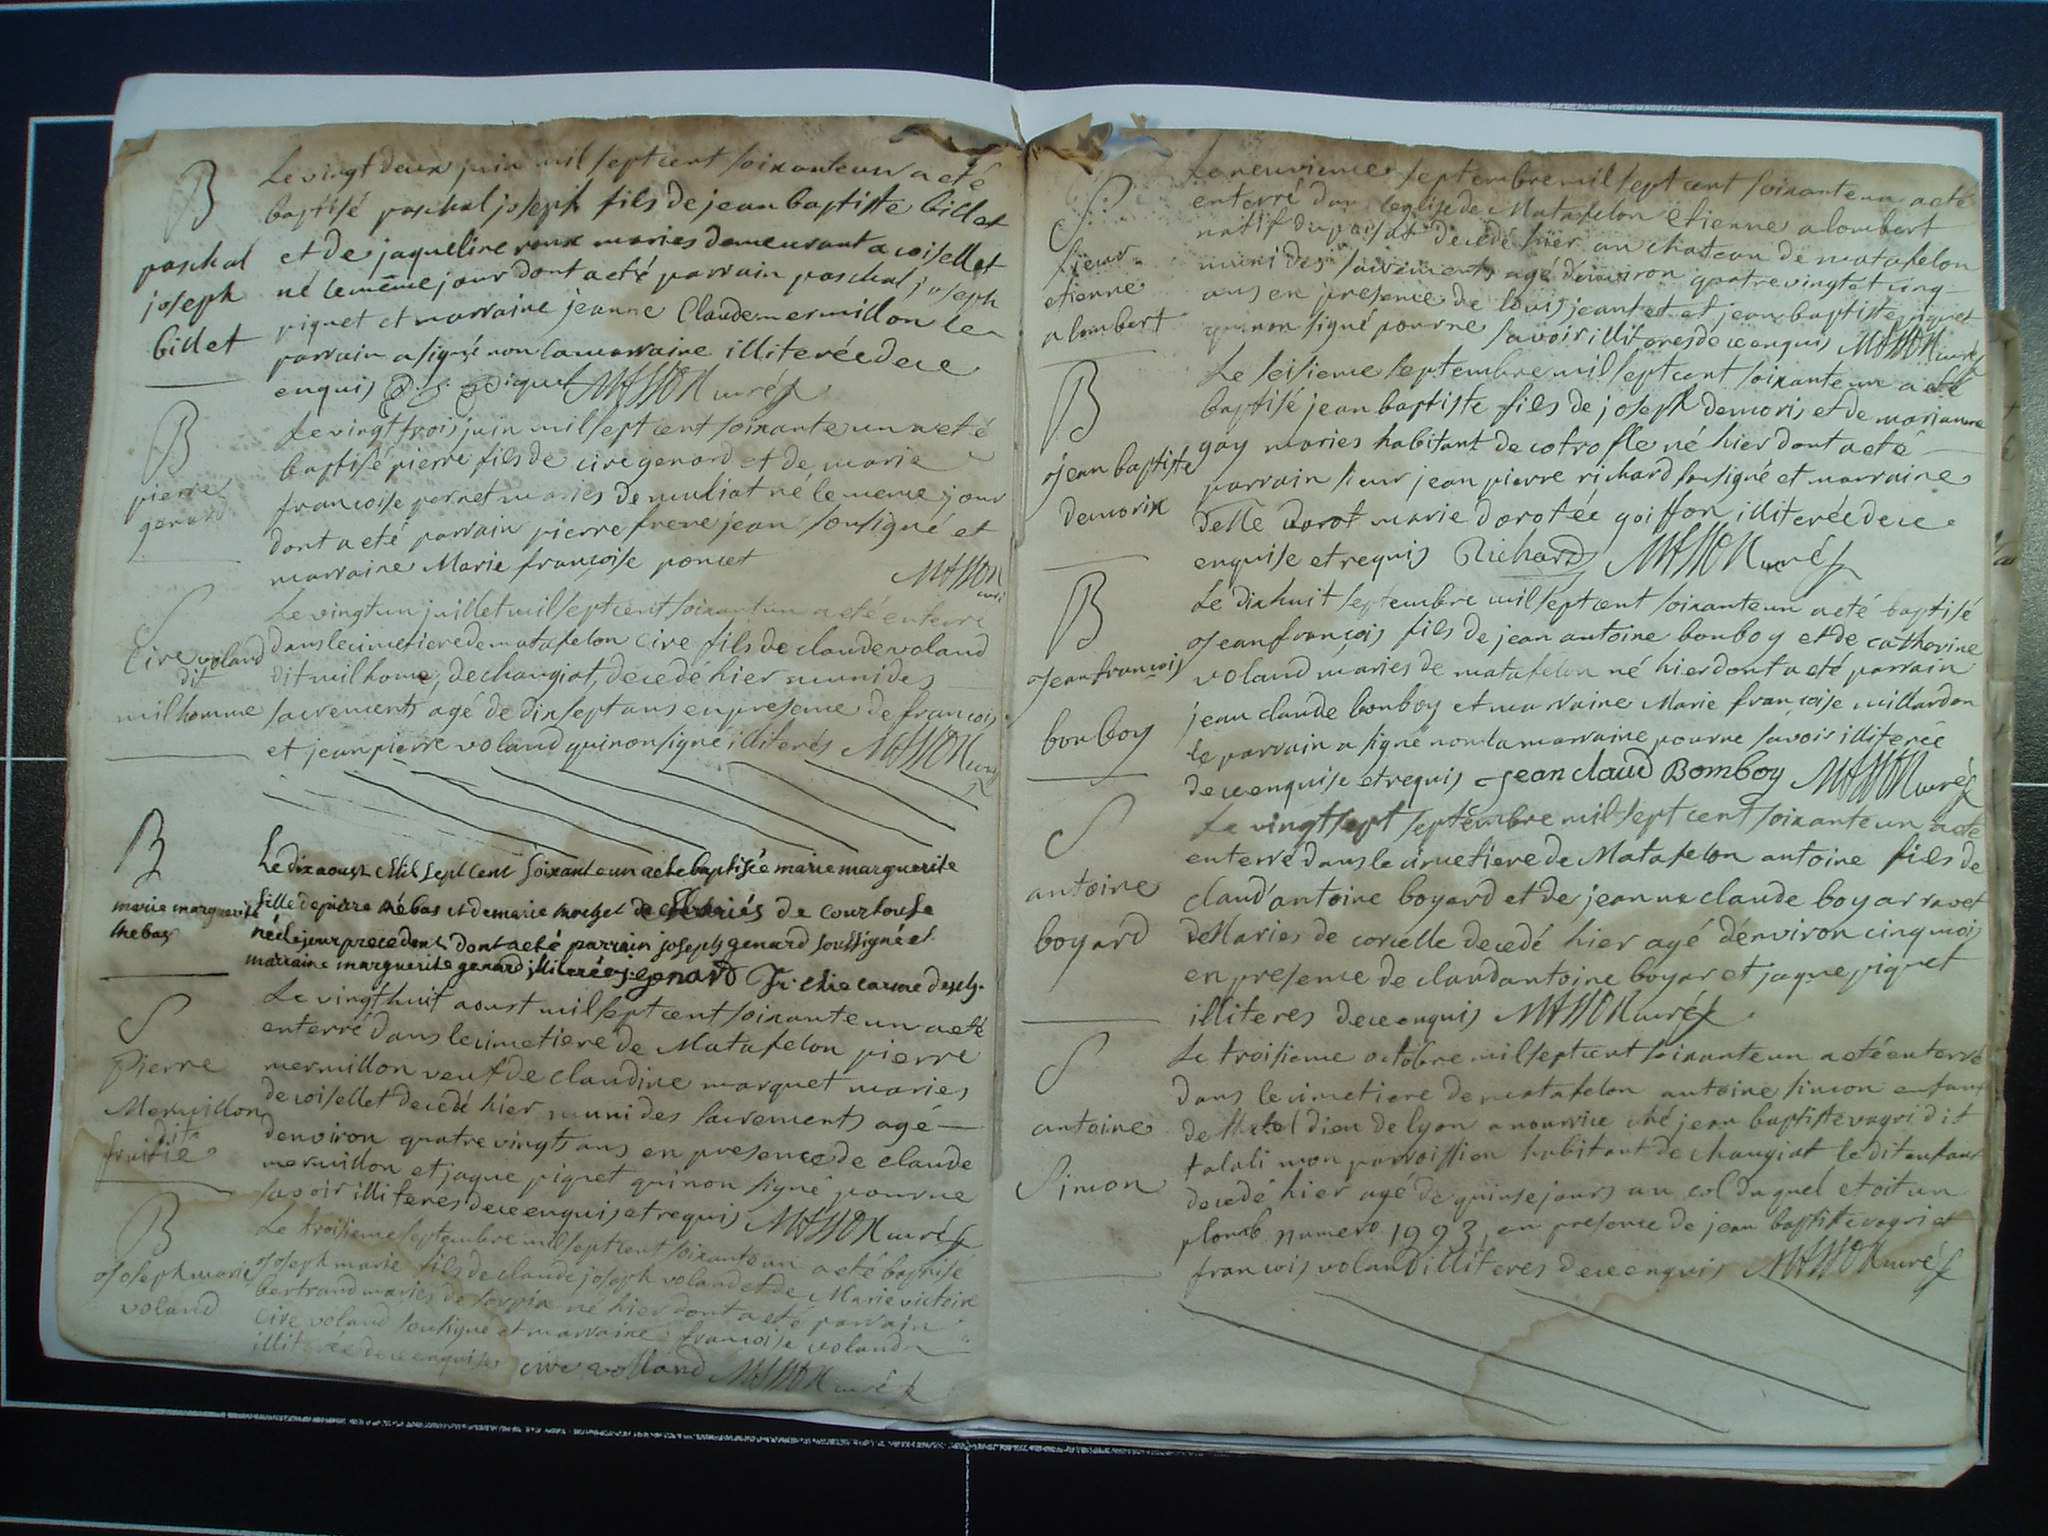 B
Le vingt deux juin mil sept cent soixante un a eté
baptisé paschal joseph fils de jean baptiste billet
paschal
et de jaqueline roux maries demeurant a coisellet
joseph
né le même jour dont acté parrain paschal joseph
billet
piquet et marraine jeanne Claude mermillon le
parrain a signé non la marraine illiterée de ce
enquis P. J. Piquet MASSON curé
B
Le vingt trois juin mil sept cent soixante un a eté
baptisé pierre fils de cire genard et de marie
pierre
genard
francoise pernet maries de muliat né le meme jour
dont acté parrain pierre frene jean sousigné et
marraine Marie françoise poncet
MASSON curé
S
Le vingt un juillet mil sept cent soixant un a eté enterré
Cire voland
dit
milhomme
dans le cimetiere de matafelon cire fils de claude voland
dit milhome, de changiat, decedé hier muni des
sacrements agé de dix sept ans en presence de francois
et jean pierre voland qui non signé illiterés MASSON curé
B
Le dix aoust Mil sept cent soixante un a ete baptisée marie marguerite
marie marguerite
fille de pierre mébas et de marie rochet de Mariés de courtouse
née le jour precedent dont acté parrain joseph genard soussigné et
marraine marguerite genard illiterée j: genard
S
Le vingt huit aoust mil sept cent soixante un a eté
enterré dans le cimetiere de Matafelon pierre
Pierre
Mermillon
dit
fruitie
mermillon veuf de claudine marquet maries
de coisellet decedé hier muni des sacrements agé
denviron quatre vingts ans en presence de claude
mermillon et jaque piquet qui non signé pour ne
savoir illiteres de ce enquis et requis MASSON curé
B
Le troisieme septembre mil sept cent soixante un a eté baptisé
Joseph marie
voland
joseph marie fils de claude joseph voland et de Marie victoire
bertrand mariés de né hier dont acté parrain
cire voland sousigné et marraine francoise voland
illiterée de ce enquise cire volland MASSON curé
S
Le neuvieme septembre mil sept cent soixante un a eté
enterré dans leglise de Matafelon Etienne alombert
sieur
etienne
alombert
natif du decedé hier au chateau de matafelon
muni des sacrements agé denviron quatre vingt et cinq
ans en presence de louis jeantet et jean baptiste piquet
qui non signé pour ne savoir illiteres de ce enquis MASSON curé
B
Le seisieme septembre mil sept cent soixante un a eté
baptisé jean baptiste fils de joseph demoris et de marianne
jean baptiste
demorix
gay maries habitant de cotrofle né hier dont acté
parrain sieur jean pierre richard sousigné et marraine
delle marie dorotée goiffon illiterée de ce
enquise et requis Richard MASSON curé
B
Le dix huit septembre mil sept cent soixante un a eté baptisé
jean francois
bonboy
jean françois fils de jean antoine bonboy et de catherine
voland maries de matafelon né hier dont acté parrain
jean claude bonboy et marraine Marie françoise millardon
le parrain a signé non la marraine pour ne savoir illiterée
de ce enquise et requis jean claud Bomboy MASSON curé
S
Le vingt sept septembre mil sept cent soixante un a eté
enterré dans le cimetiere de Matafelon antoine fils de
antoine
boyard
claud'antoine boyard et de jeanne claude boyar ravet
de Maries de corcelle decedé hier agé d'environ cinq mois
en presence de claudantoine boyar et jaque piquet
illiteres de ce enquis MASSON curé
S
Le troisieme octobre mil sept cent soixante un a eté enterré
dans le cimetiere de matafelon antoine simon enfant
antoine
Simon
de lhotel dieu de lyon a nourrice ché jean baptiste vagri dit
talali mon parroissien habitant de changiat le dit enfant
decedé hier agé de quinse jours au col duquel etoit un
plomb numero 1993, en presence de jean baptiste vagri et
francois voland illiteres de ce enquis MASSON curé